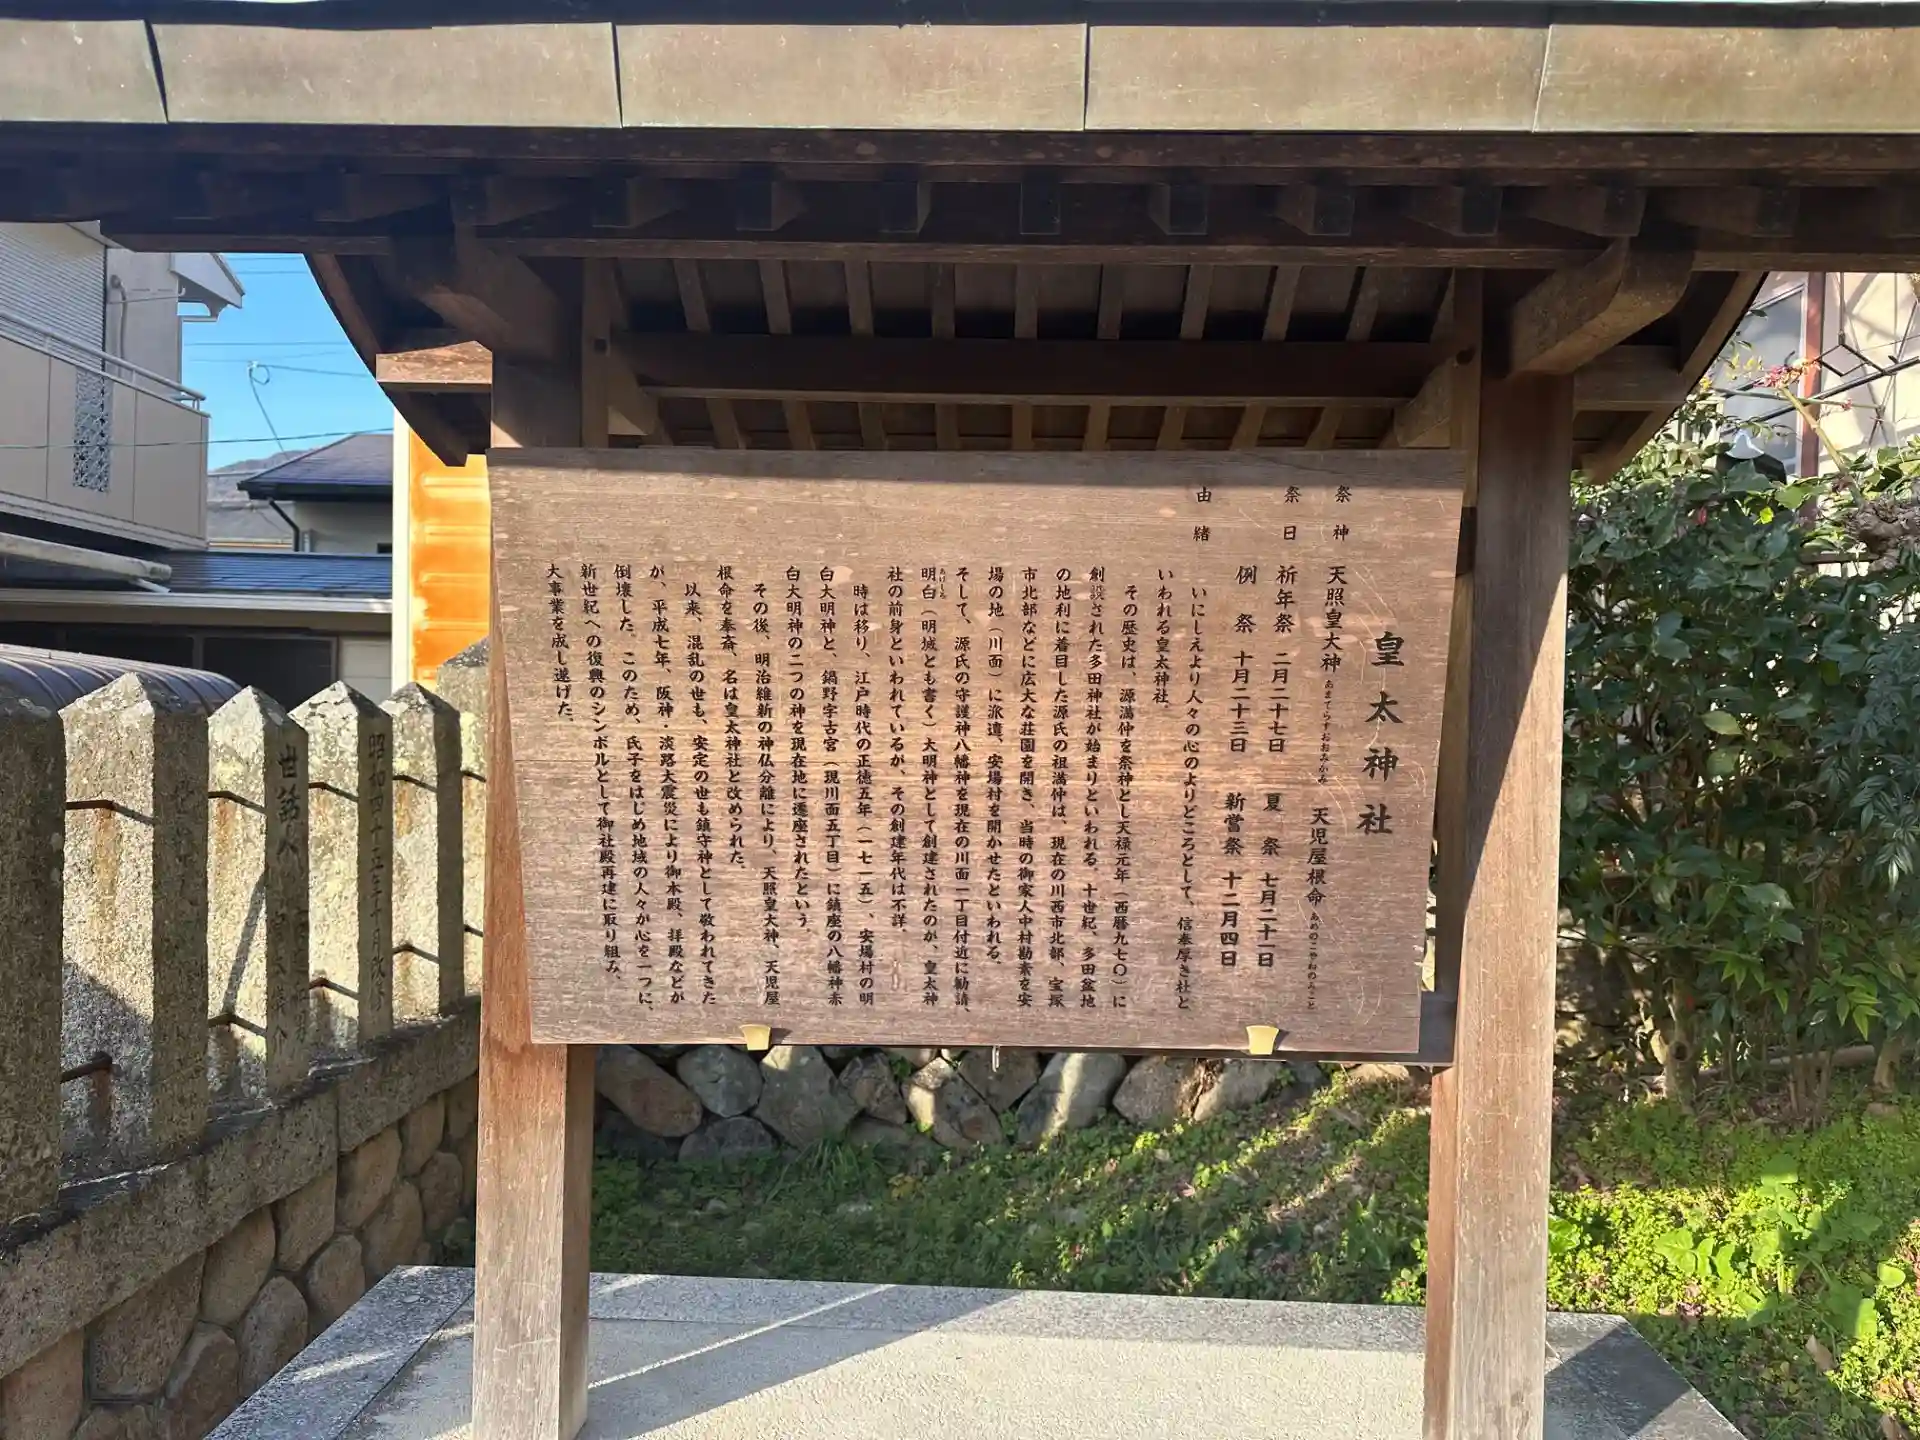 皇太神社
祭神 天照皇大神 あまてらすおおみかみ 天児屋根命 あめのこやねのみこと
祭日 祈年祭 二月二十七日 夏祭 七月二十一日
例祭 十月二十三日 新嘗祭 十二月四日
由緒
いにしえより人々の心のよりどころとして、信奉厚き社と
いわれる皇太神社。
その歴史は、源満仲を祭神とし天禄元年（西暦九七〇）に
創設された多田神社が始まりといわれる。十世紀、多田盆地
の地利に着目した源氏の祖満仲は、現在の川西市北部、宝塚
市北部などに広大な荘園を開き、当時の御家人中村勘素を安
場の地（川面）に派遣、安場村を開かせたといわれる。
そして、源氏の守護神八幡神を現在の川面一丁目付近に勧請、
明白（明城とも書く）大明神として創建されたのが、皇太神
社の前身といわれているが、その創建年代は不詳。
時は移り、江戸時代の正徳五年（一七一五）、安場村の明
白大明神と、鍋野字古宮（現川面五丁目）に鎮座の八幡神赤
白大明神の二つの神を現在地に遷座されたという。
その後、明治維新の神仏分離により、天照皇大神、天児屋
根命を奉斎、名は皇太神社と改められた。
以来、混乱の世も、安定の世も鎮守神として敬われてきた
が、平成七年、阪神・淡路大震災により御本殿、拝殿などが
倒壊した。このため、氏子をはじめ地域の人々が心を一つに、
新世紀への復興のシンボルとして御社殿再建に取り組み、
大事業を成し遂げた。
昭和四十五年十月改修
世話人